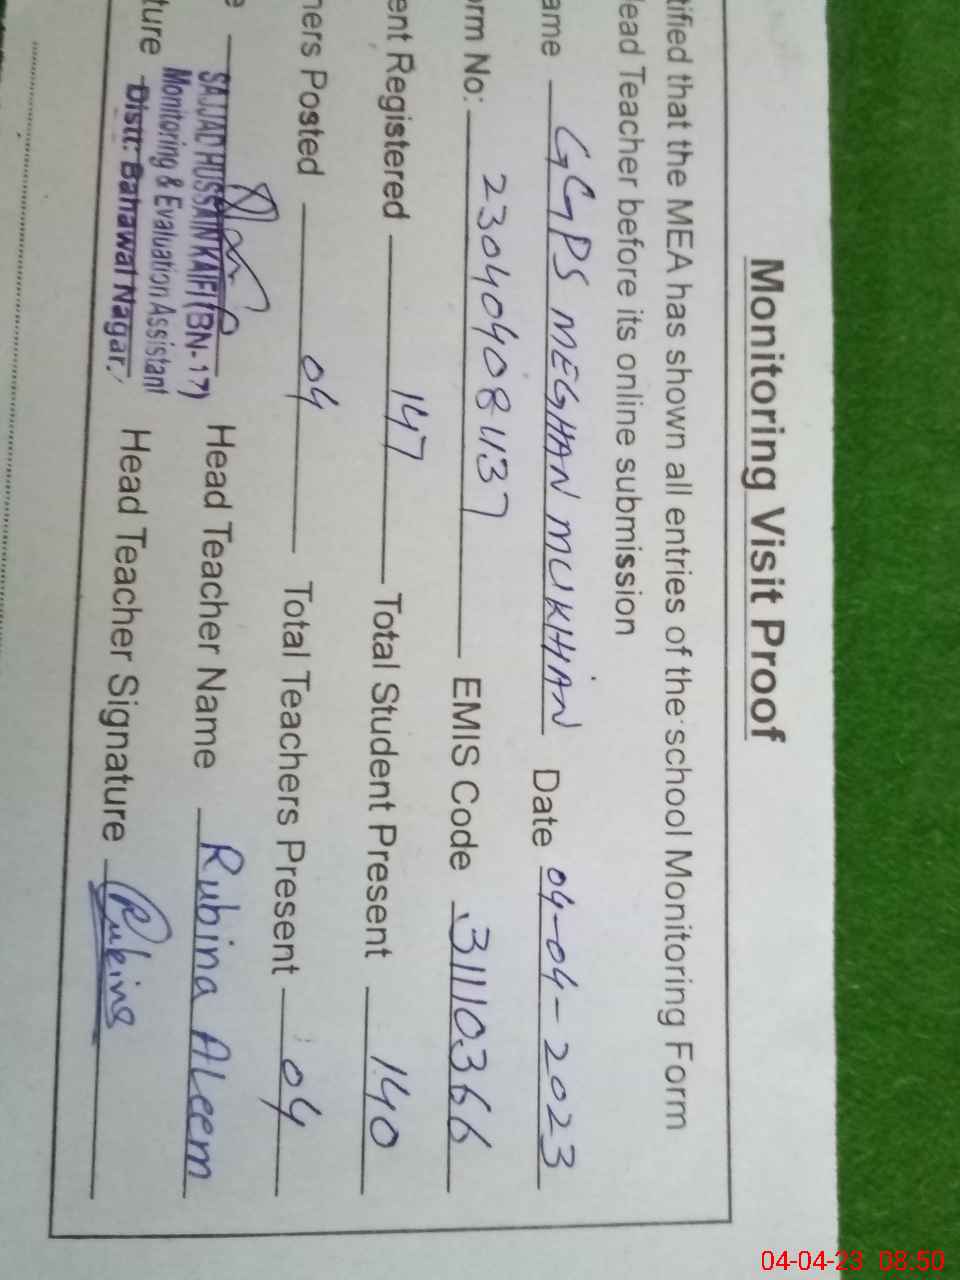 Monitoring Visit Proof
tified that the MEA has shown all entries of the school Monitoring Form
lead Teacher before its online submission
ame GGPS MEGHAN MUKHAN Date 04-04-2023
orm No: 23040408437 EMIS Code 31110366
ent Registered 147 Total Student Present 140
hers Posted 04 Total Teachers Present 04
e SAJJAD HUSSAIN KAIFI (BN-17) Head Teacher Name Rubina Aleem
Monitoring & Evaluation Assistant
ture Distt: Bahawal Nagar. Head Teacher Signature Rubina
04-04-23 08:50